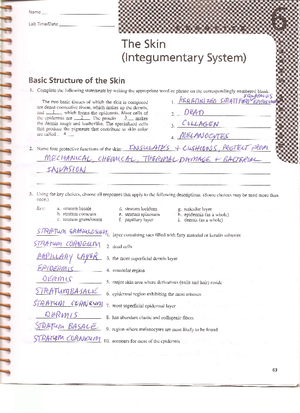 Name
Lab Time/Date
6
The Skin
(Integumentary System)
Basic Structure of the Skin
1. Complete the following statements by writing the appropriate word or phrase on the correspondingly numbered blank:
The two basic tissues of which the skin is composed
are dense connective tissue, which makes up the dermis,
and 1, which forms the epidermis. Most cells of
the epidermis are 2. The protein 3 makes
the dermis tough and leatherlike. The specialized cells
that produce the pigments that contribute to skin color
are called 4.
1. KERATINIZED STRATIFIED SQUAMOUS
2. DEAD
3. COLLAGEN
4. MELANOCYTES
2. Name four protective functions of the skin: INSULATES & CUSHIONS, PROTECT FROM
MECHANICAL, CHEMICAL, THERMAL DAMAGE & BACTERIAL
INVASION
3. Using the key choices, choose all responses that apply to the following descriptions. (Some choices may be used more than
Key: a. stratum basale d. stratum lucidum g. reticular layer
b. stratum corneum e. stratum spinosum h. epidermis (as a whole)
c. stratum granulosum f. papillary layer i. dermis (as a whole)
STRATUM GRANULOSUM 1. layer containing sacs filled with fatty material or keratin
STRATUM CORNEUM 2. dead cells
PAPILLARY LAYER 3. the most superficial dermis layer
EPIDERMIS 4. avascular region
DERMIS 5. major skin area where derivatives (nails and hair) reside
STRATUM BASALE 6. epidermal region exhibiting the most mitosis
STRATUM CORNEUM 7. most superficial epidermal layer
DERMIS 8. has abundant elastic and collagenic fibers
STRATUM BASALE 9. region where melanocytes are most likely to be found
STRATUM CORNEUM 10. accounts for most of the epidermis
63